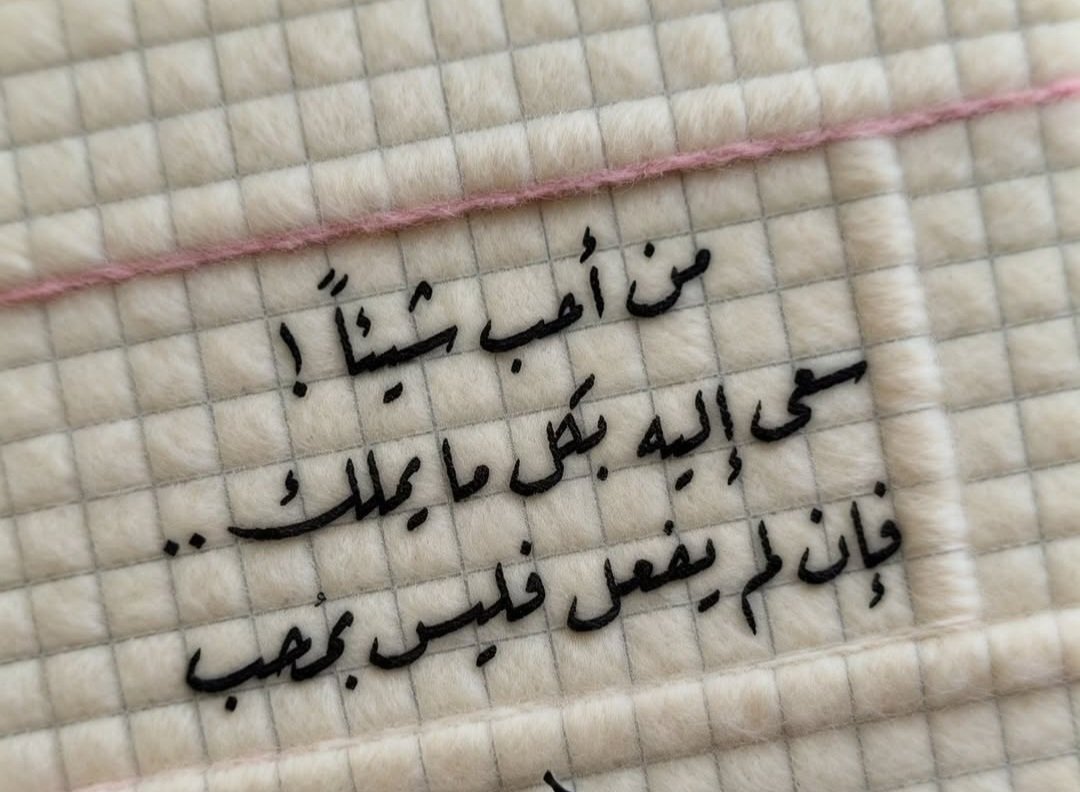 من أحب شيئاً !
سعى إليه بكل ما يملك ..
فإن لم يفعل فليس بمُحب